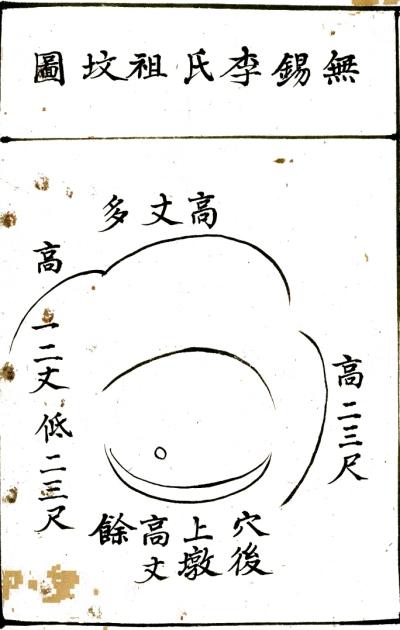 無錫李氏祖坟圖
高丈多
高二三尺
穴後
上墩
高丈
餘
高一二丈低二三尺